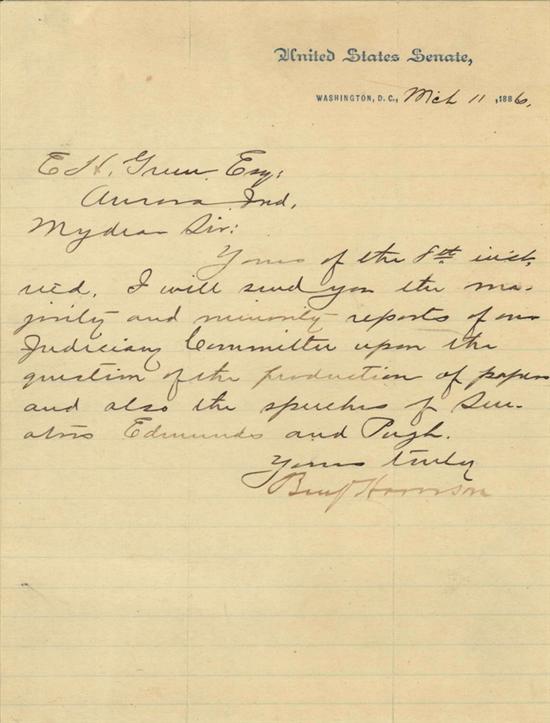 United States Senate,
WASHINGTON, D. C., Mch 11, 1886.
E H. Green Esq;
Aurora Ind.
My dear Sir:
Yours of the 8th inst.
rec'd. I will send you the ma-
jority and minority reports of our
Judiciary Committee upon the
question of the production of papers
and also the speeches of Sen-
ators Edmunds and Pugh.
Yours truly
Benj Harrison